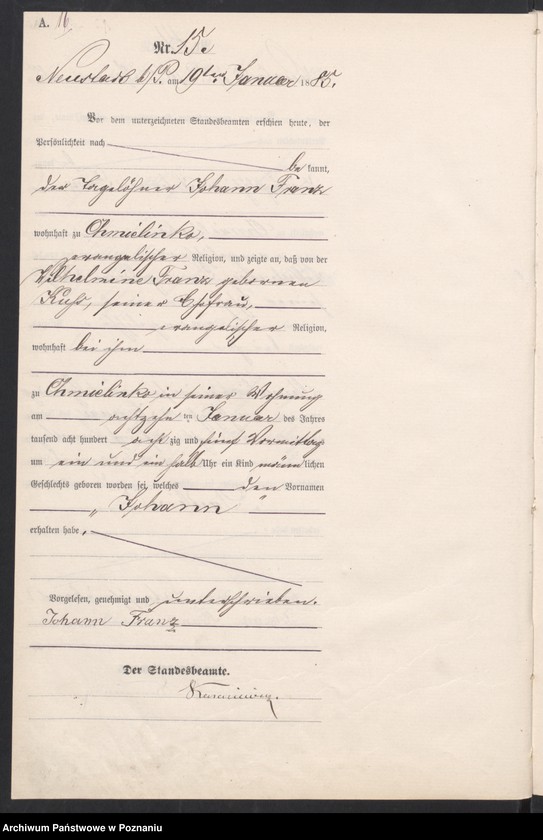 A. 16
Nr. 15.
Neustadt b/P. am 19ten Januar 1885.
Vor dem unterzeichneten Standesbeamten erschien heute, der
Persönlichkeit nach
be kannt,
der Tagelöhner Johann Franz
wohnhaft zu Chmielinko,
evangelischer Religion, und zeigte an, daß von der
Wilhelmine Franz gebornen
seiner Ehefrau,
evangelischer Religion,
wohnhaft bei ihm
zu Chmielinko in seiner Wohnung
am achtzehn ten Januar des Jahres
tausend acht hundert acht zig und fünf Vormittag
um ein und ein halb Uhr ein Kind männ lichen
Geschlechts geboren worden sei, welches den Vornamen
„Johann"
erhalten habe.
Vorgelesen, genehmigt und unterschrieben.
Johann Franz
Der Standesbeamte.
Archiwum Państwowe w Poznaniu